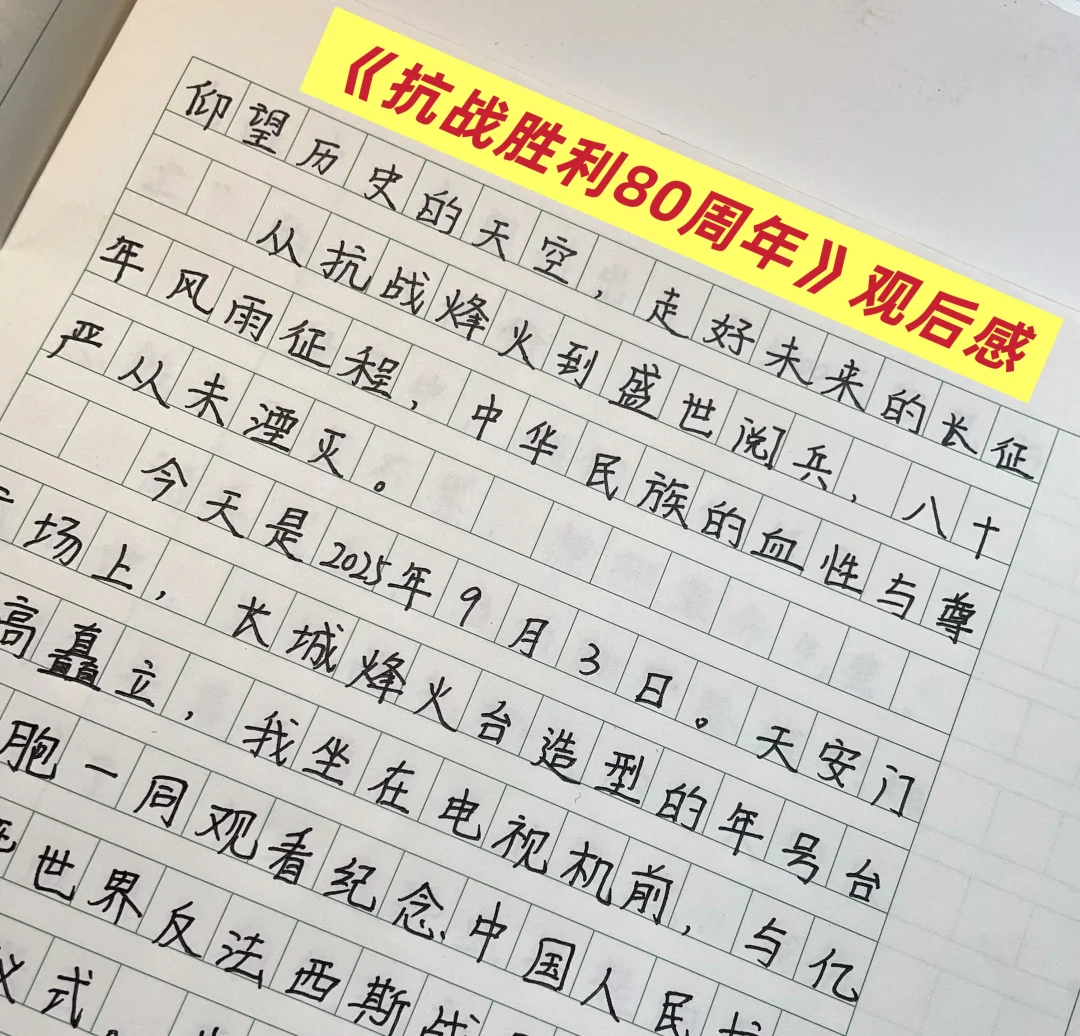 《抗战胜利80周年》观后感
仰望历史的天空，走好未来的长征
从抗战烽火到盛世阅兵，八十
年风雨征程，中华民族的血性与尊
严从未湮灭。
今天是2025年9月3日。天安门
场上，长城烽火台造型的年号台
高矗立，我坐在电视机前，与亿
胞一同观看纪念中国人民
世界反法西斯战
仪式，